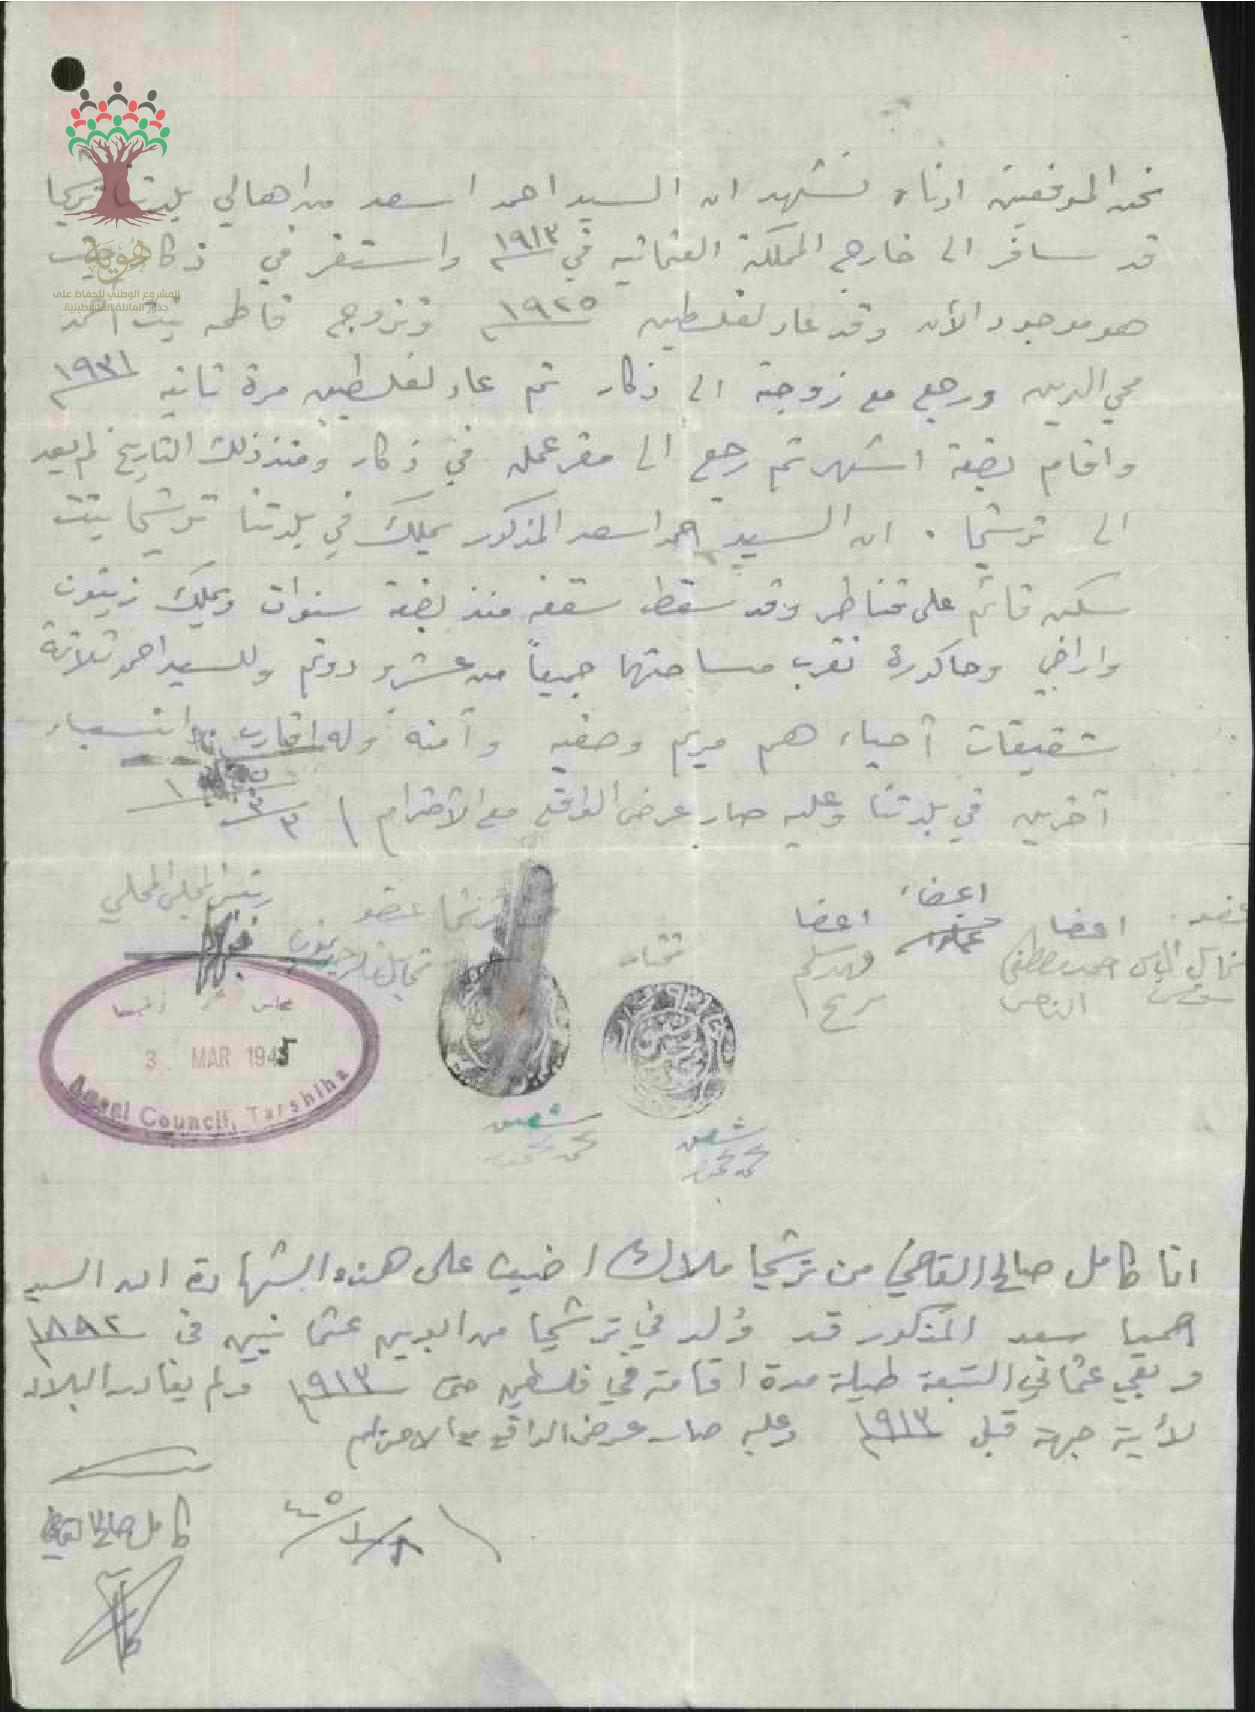 نحن الموقعين ادناه نشهد ان السيد احمد اسعد من اهالي بلدتنا ترشيحا
قد سافر الى خارج المملكة العثمانيه في ١٩١٣م واستقر في ذكار حيث
هو موجود الأن وقد عاد لفلسطين ١٩٢٥م وتزوج فاطمه بنت احمد
محي الدين ورجع مع زوجته الى ذكار ثم عاد لفلسطين مرة ثانيه ١٩٣١م
واقام بضعة اشهر ثم رجع الى مقر عمله في ذكار ومنذ ذلك التاريخ لم يعد
الى ترشيحا . ان السيد احمد اسعد المذكور يملك في بلدتنا ترشيحا بيت
سكن قائم على قناطر وقد سقط سقفه منذ بضعة سنوات ويملك زيتون
واراضي وحاكورة تقرب مساحتها جميعاً من عشرين دونم وللسيد احمد ثلاثة
شقيقات أحياء هم مريم وصفيه وآمنه وله اقارب انسباء
آخرين في بلدتنا وعليه صار عرض الواقع مع الاحترام
رئيس المجلس المحلي
ترشيحا عضو
مختار
اعضا
فهد سليم
اعضاء
اعضا
احمد مصطفى
عضو
الياس
المشروع الوطني للحفاظ على
جذور العائلة الفلسطينية
هوية
3 MAR 1945
Local Council, Tarshiha
شعبن
محمد محمود
شعبن
محمد محمود
انا كامل صالح القاضي من ترشيحا ملاك اضيف على هذه الشهادة ان السيد
احمد اسعد المذكور قد وُلد في ترشيحا من ابوين عثمانيين في ١٨٨٢م
وبقي عثماني التبعة طيلة مدة اقامته في فلسطين حتى ١٩١٣م ولم يغادر البلاد
لأية جهة قبل ١٩١٣م وعليه صار عرض الواقع مع الاحترام
كامل صالح القاضي